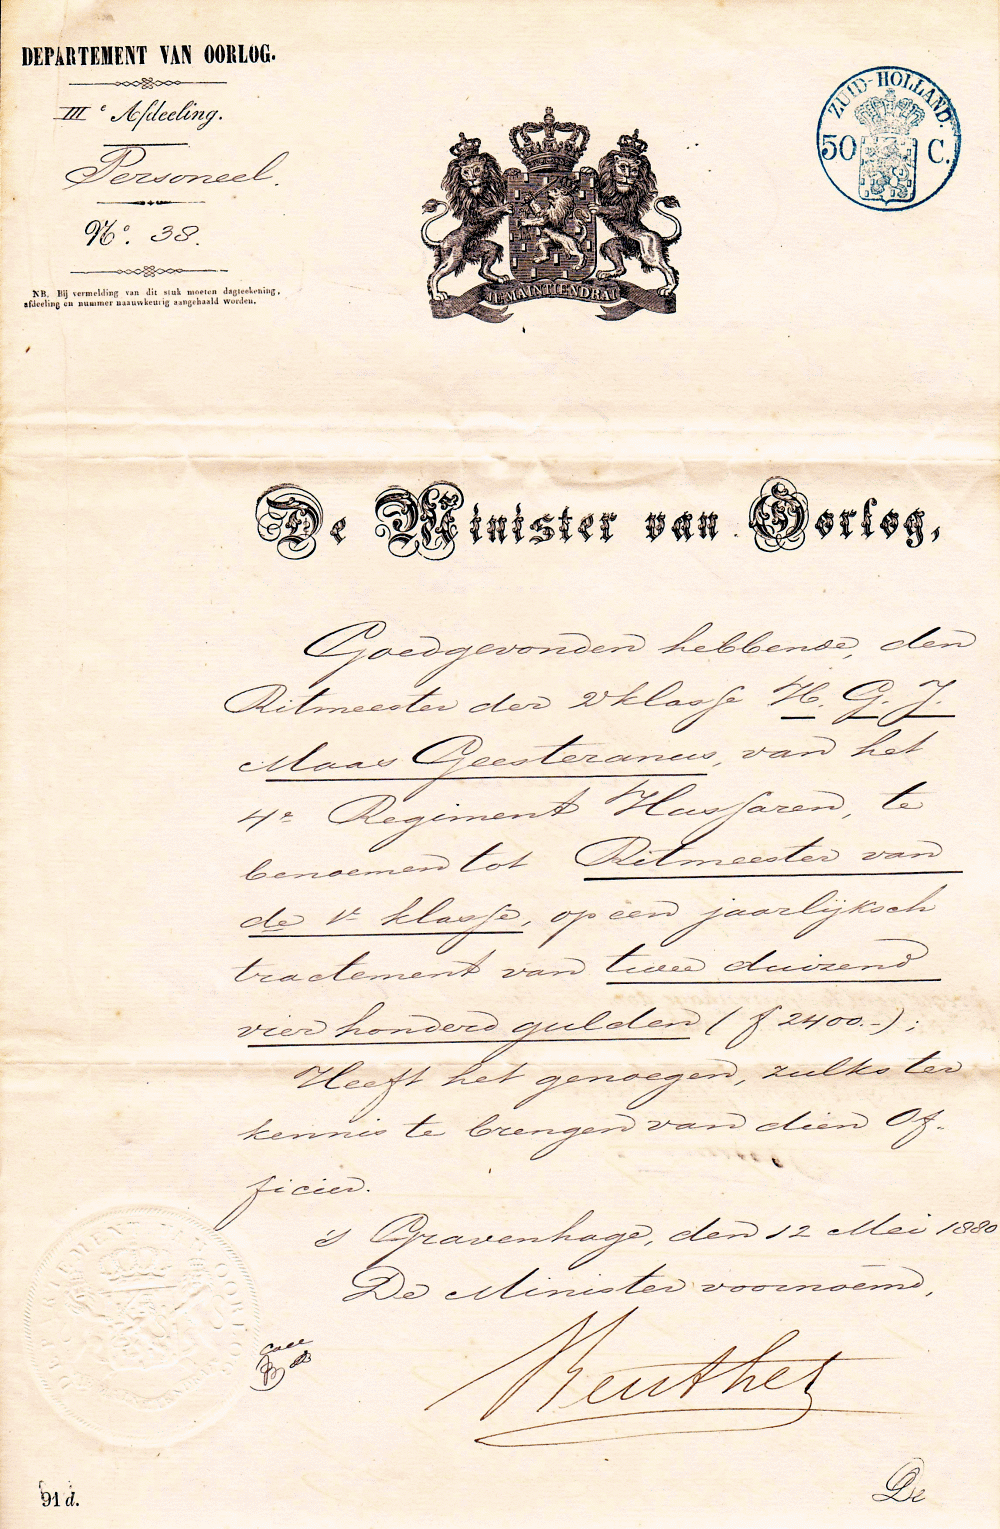 DEPARTEMENT VAN OORLOG.
IIIe Afdeeling.
Personeel.
No. 38.
NB. Bij vermelding van dit stuk moeten dagteekening,
afdeeling en nummer naauwkeurig aangehaald worden.
ZUID-HOLLAND.
50 C.
JE MAINTIENDRAI
De Minister van Oorlog,
Goedgevonden hebbende, den
Ritmeester der 2e klasse H. G. J.
Maas Geesteranus, van het
4e Regiment Hussaren, te
benoemen tot Ritmeester van
de 1e klasse, op een jaarlijksch
tractement van twee duizend
vier honderd gulden (f 2400.-);
Heeft het genoegen, zulks ter
kennis te brengen van dien Of-
ficier.
's Gravenhage, den 12 Mei 1880
De Minister voornoemd,
Reuther
DEPARTEMENT VAN OORLOG
91 d.
De